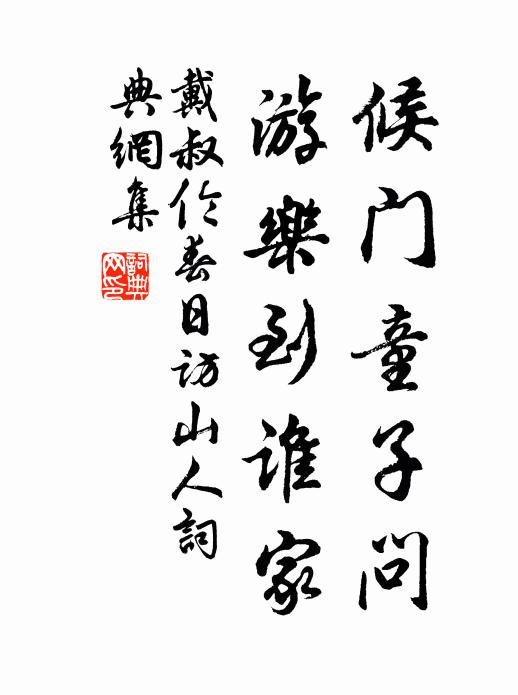 候门童子问
游樂到谁家
戴叔伦春日访山人詞
典網集
詞典网印